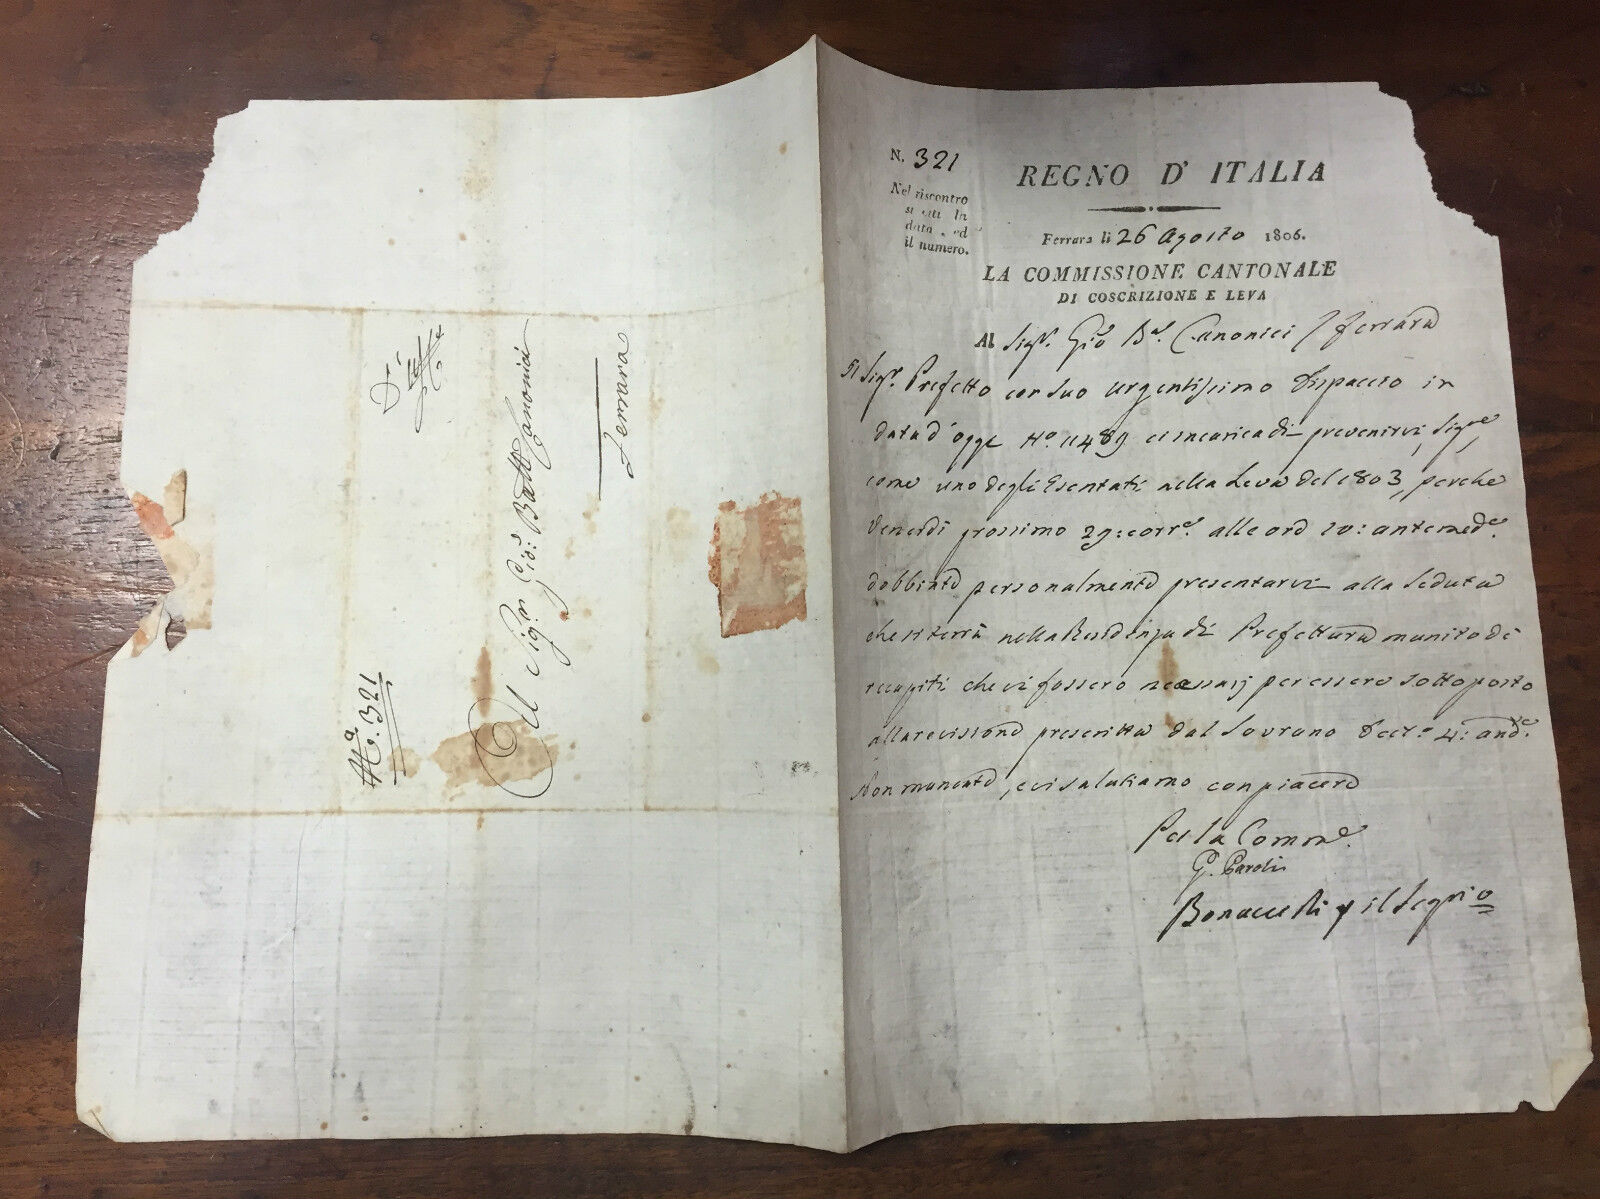 N. 321
Nel riscontro
si citi la
data, ed
il numero.
REGNO D' ITALIA
Ferrara li 26 Agosto 1806.
LA COMMISSIONE CANTONALE
DI COSCRIZIONE E LEVA
Al Sigr. Gio Ba. Canonici / Ferrara
Il Sigr. Prefetto con suo urgentissimo Dispaccio in
data d'oggi No. 11489 ci incarica di prevenirvi, Sigre,
come uno degli Esentati nella Leva del 1803, perche
Venerdi prossimo 29: corre. alle ore 10: antemede.
dobbiate personalmente presentarvi alla Seduta
che si terrà nella Residenza di Prefettura munito di
recapiti che vi fossero necessarj per essere sottoposto
alla revisione prescritta dal Sovrano Decto. 4: ande.
Non mancate, e vi salutiamo con piacere
Per la Comme.
G. Paroli
il Segrio
Al Sigr. Gio: Batta Canonici
Ferrara
No. 321